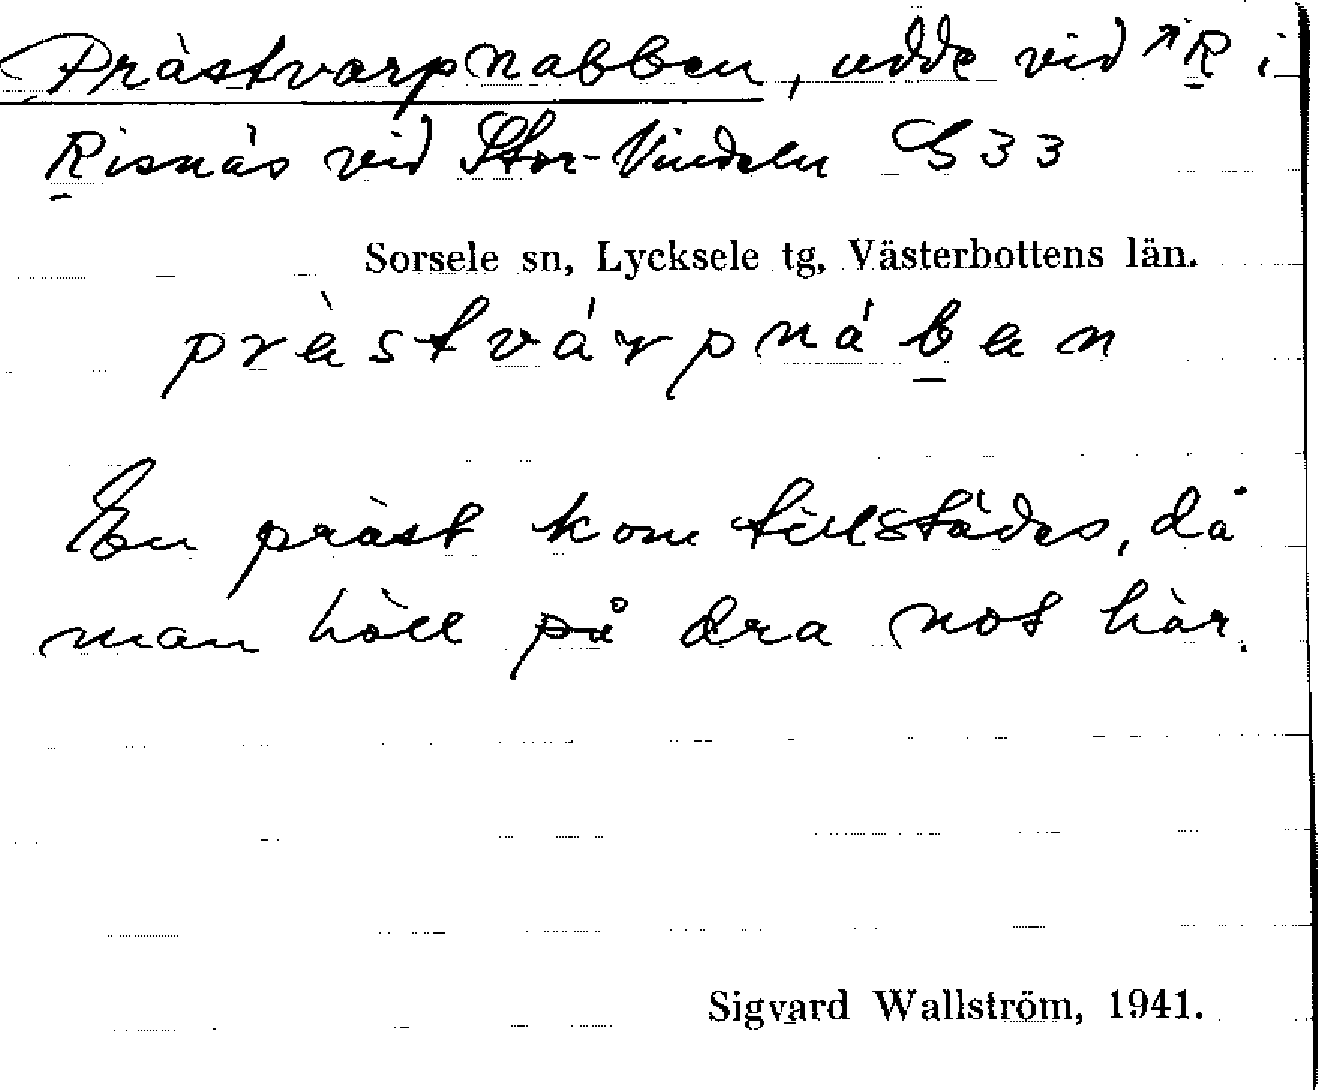 Prästvarpnabben, udde vid ↗R i
Risnäs vid Stor-Vindeln G 33
Sorsele sn, Lycksele tg, Västerbottens län.
prὲstvárpnáb̲en
En präst kom tillstädes, då
man höll på dra not här.
Sigvard Wallström, 1941.